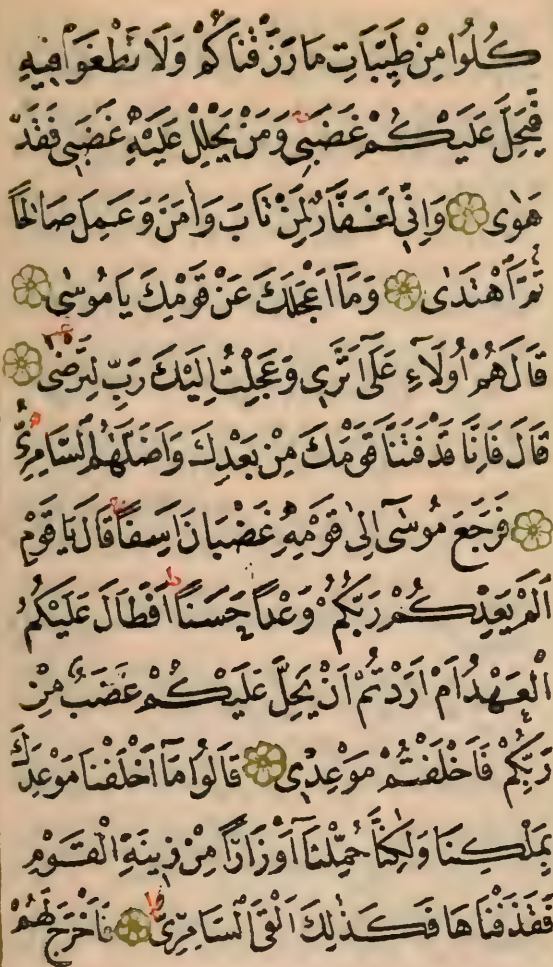 كُلُوا مِنْ طَيِّبَاتِ مَا رَزَقْنَاكُمْ وَلَا تَطْغَوْا فِيهِ
فَيَحِلَّ عَلَيْكُمْ غَضَبِي وَمَنْ يَحْلِلْ عَلَيْهِ غَضَبِي فَقَدْ
هَوٰى وَاِنِّي لَغَفَّارٌ لِمَنْ تَابَ وَاٰمَنَ وَعَمِلَ صَالِحًا
ثُمَّ اهْتَدٰى وَمَآ اَعْجَلَكَ عَنْ قَوْمِكَ يَا مُوسٰى
قَالَ هُمْ اُولَآءِ عَلٰٓى اَثَرِي وَعَجِلْتُ اِلَيْكَ رَبِّ لِتَرْضٰى
قَالَ فَاِنَّا قَدْ فَتَنَّا قَوْمَكَ مِنْ بَعْدِكَ وَاَضَلَّهُمُ السَّامِرِيُّ
فَرَجَعَ مُوسٰٓى اِلٰى قَوْمِهِ غَضْبَانَ اَسِفًا قَالَ يَا قَوْمِ
اَلَمْ يَعِدْكُمْ رَبُّكُمْ وَعْدًا حَسَنًا اَفَطَالَ عَلَيْكُمُ
الْعَهْدُ اَمْ اَرَدْتُمْ اَنْ يَحِلَّ عَلَيْكُمْ غَضَبٌ مِنْ
رَبِّكُمْ فَاَخْلَفْتُمْ مَوْعِدِي قَالُوا مَآ اَخْلَفْنَا مَوْعِدَكَ
بِمَلْكِنَا وَلٰكِنَّا حُمِّلْنَآ اَوْزَارًا مِنْ زِينَةِ الْقَوْمِ
فَقَذَفْنَاهَا فَكَذٰلِكَ اَلْقَى السَّامِرِيُّ فَاَخْرَجَ لَهُمْ